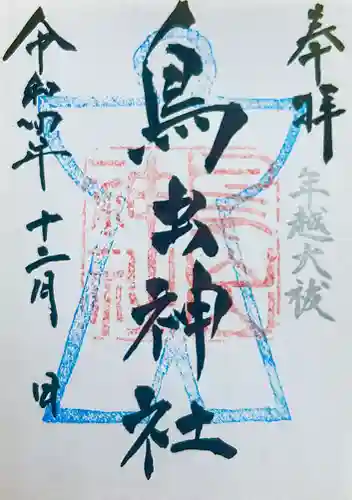 奉拝
年越大祓
鳥出神社
令和四年十二月 日